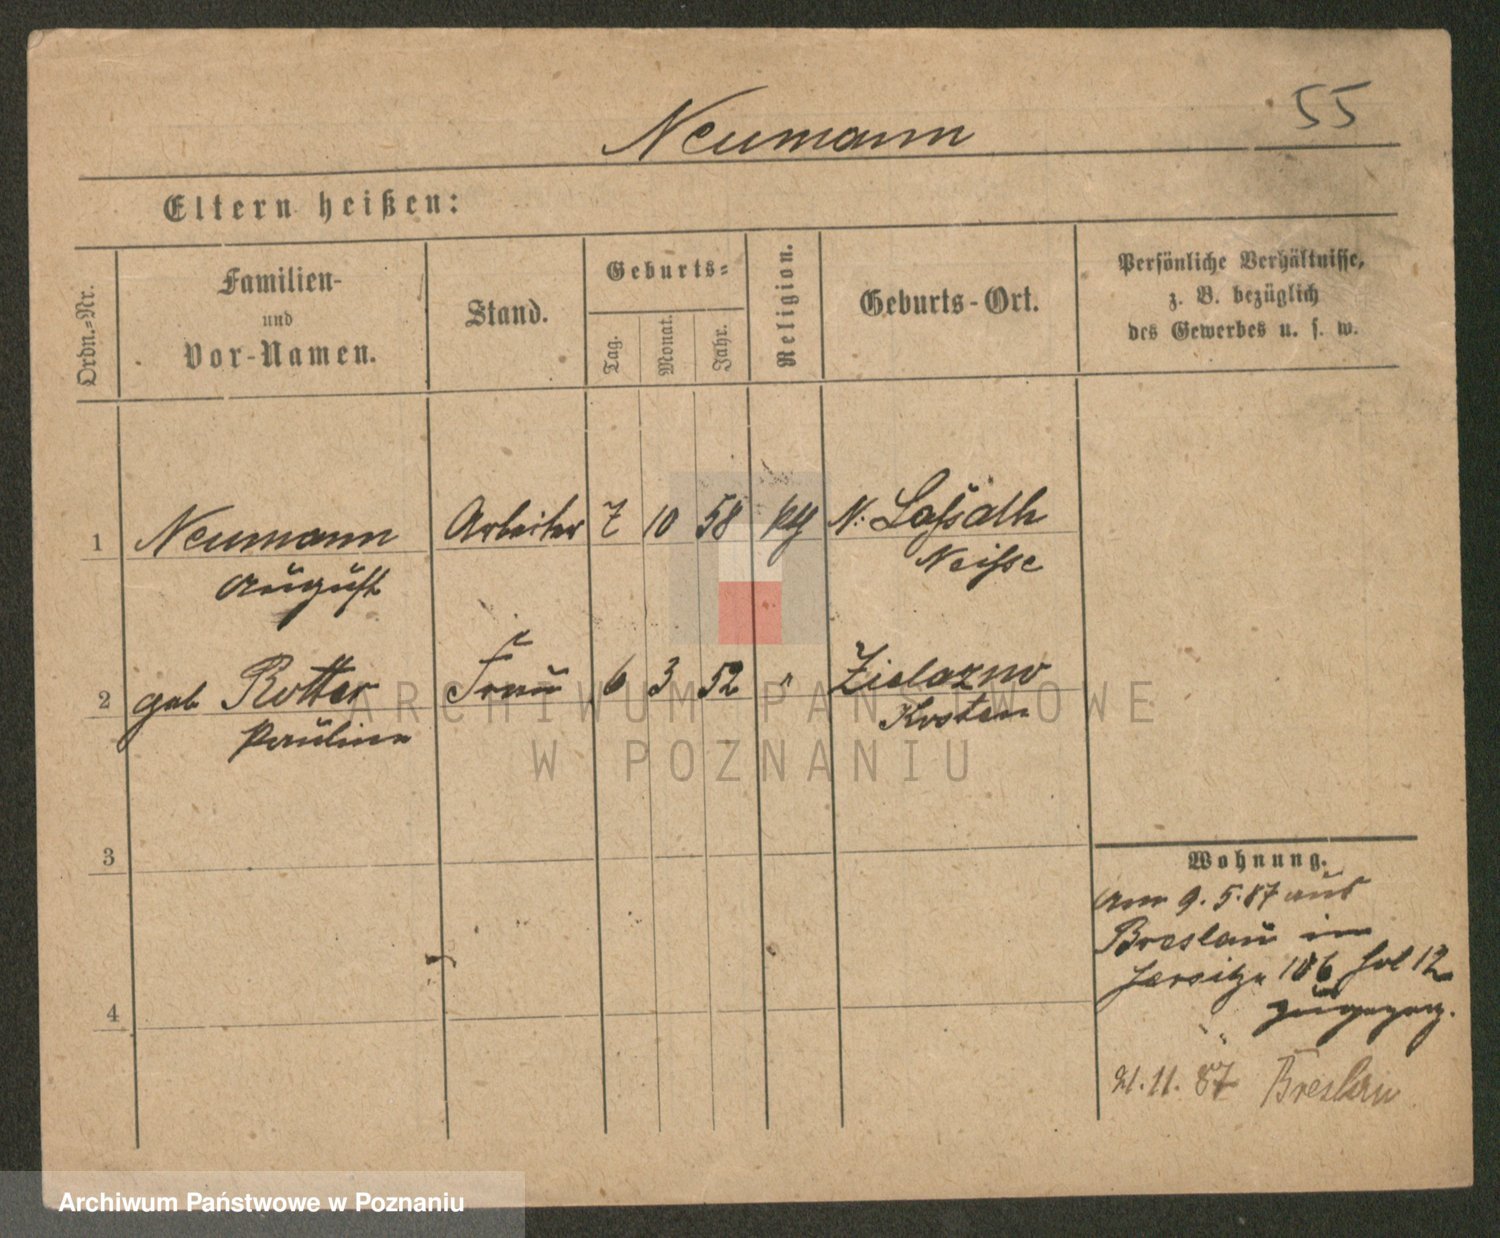 Neumann
55
Eltern heißen:
Ordn.-Nr.
Familien-
und
Vor-Namen.
Stand.
Geburts-
Tag.
Monat.
Jahr.
Religion.
Geburts-Ort.
Persönliche Verhältnisse,
z. B. bezüglich
des Gewerbes u. s. w.
1 Neumann Arbeiter 7 10 58 N. Lassoth
August Neisse
2 geb Rotter Frau 6 3 52 " Zielazno
Pauline Kosten
ARCHIWUM PAŃSTWOWE
W POZNANIU
3
4
Wohnung.
Am 9.5.87 aus
Breslau in
Jersitz 106 12
zugezog.
21.11.87 Breslau
Archiwum Państwowe w Poznaniu